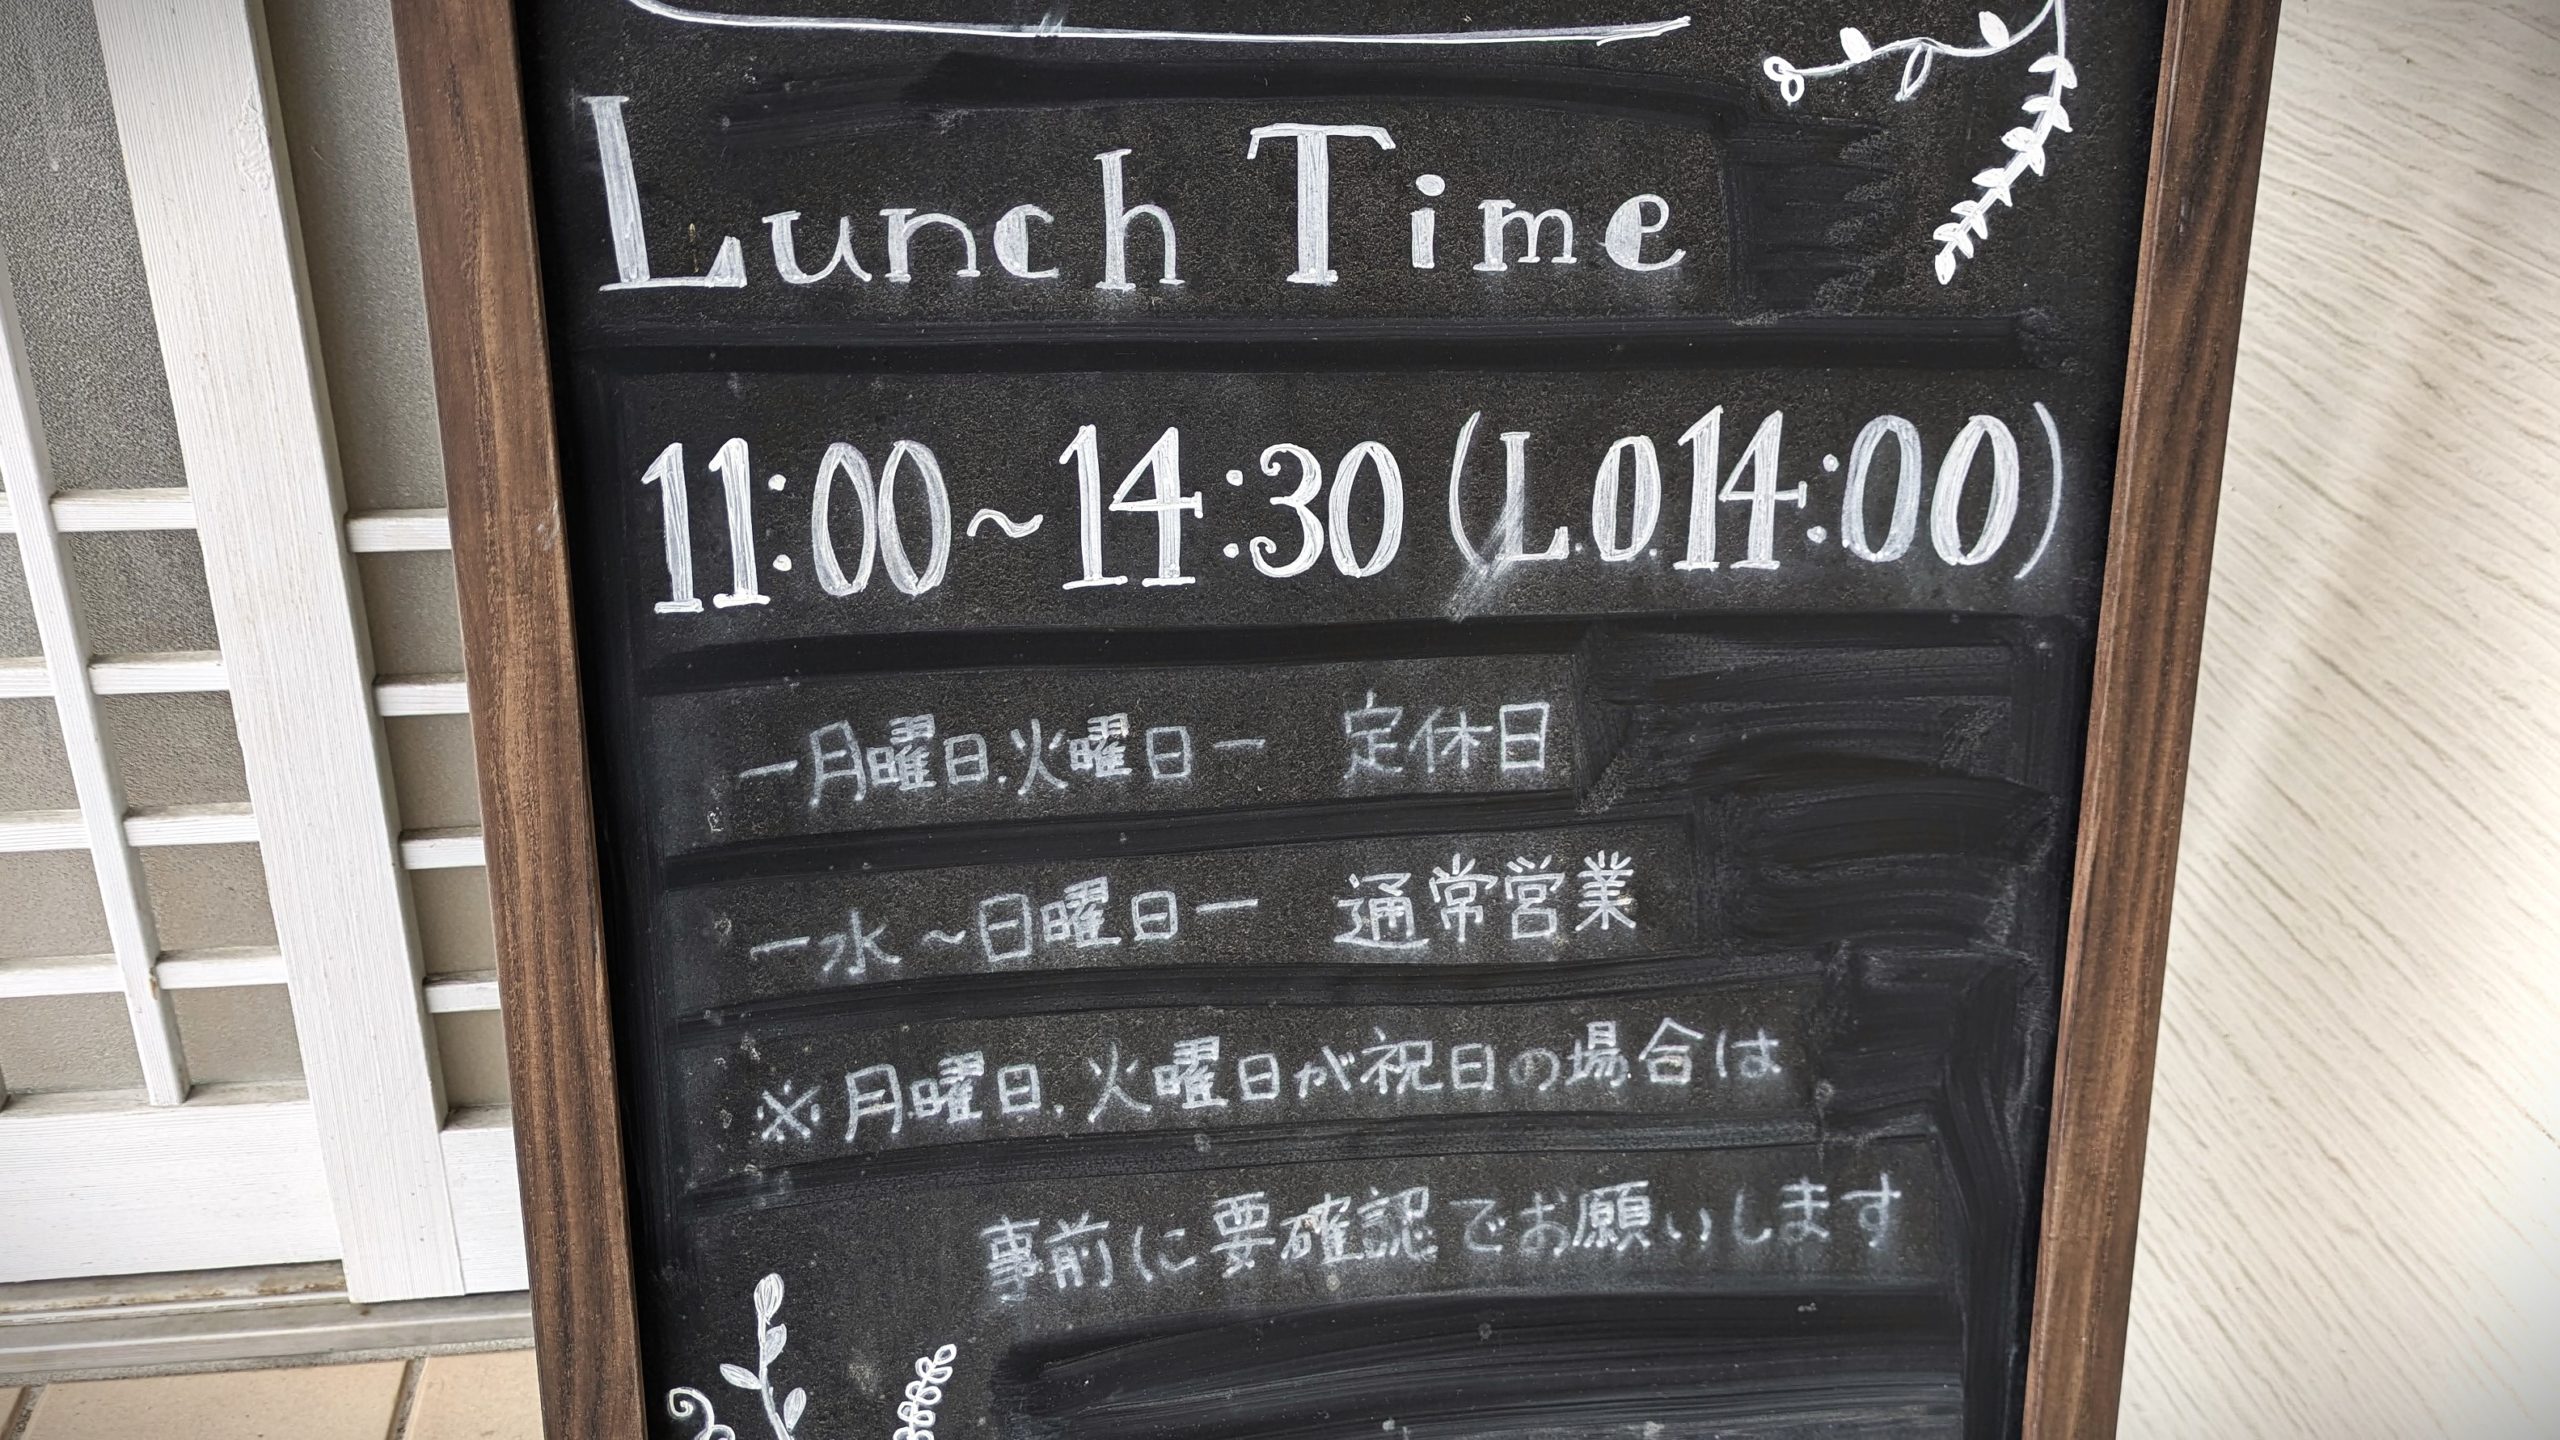 Lunch Time
11:00~14:30 (L.O.14:00)
ー月曜日.火曜日ー 定休日
ー水~日曜日ー 通常営業
※月曜日.火曜日が祝日の場合は
事前に要確認でお願いします